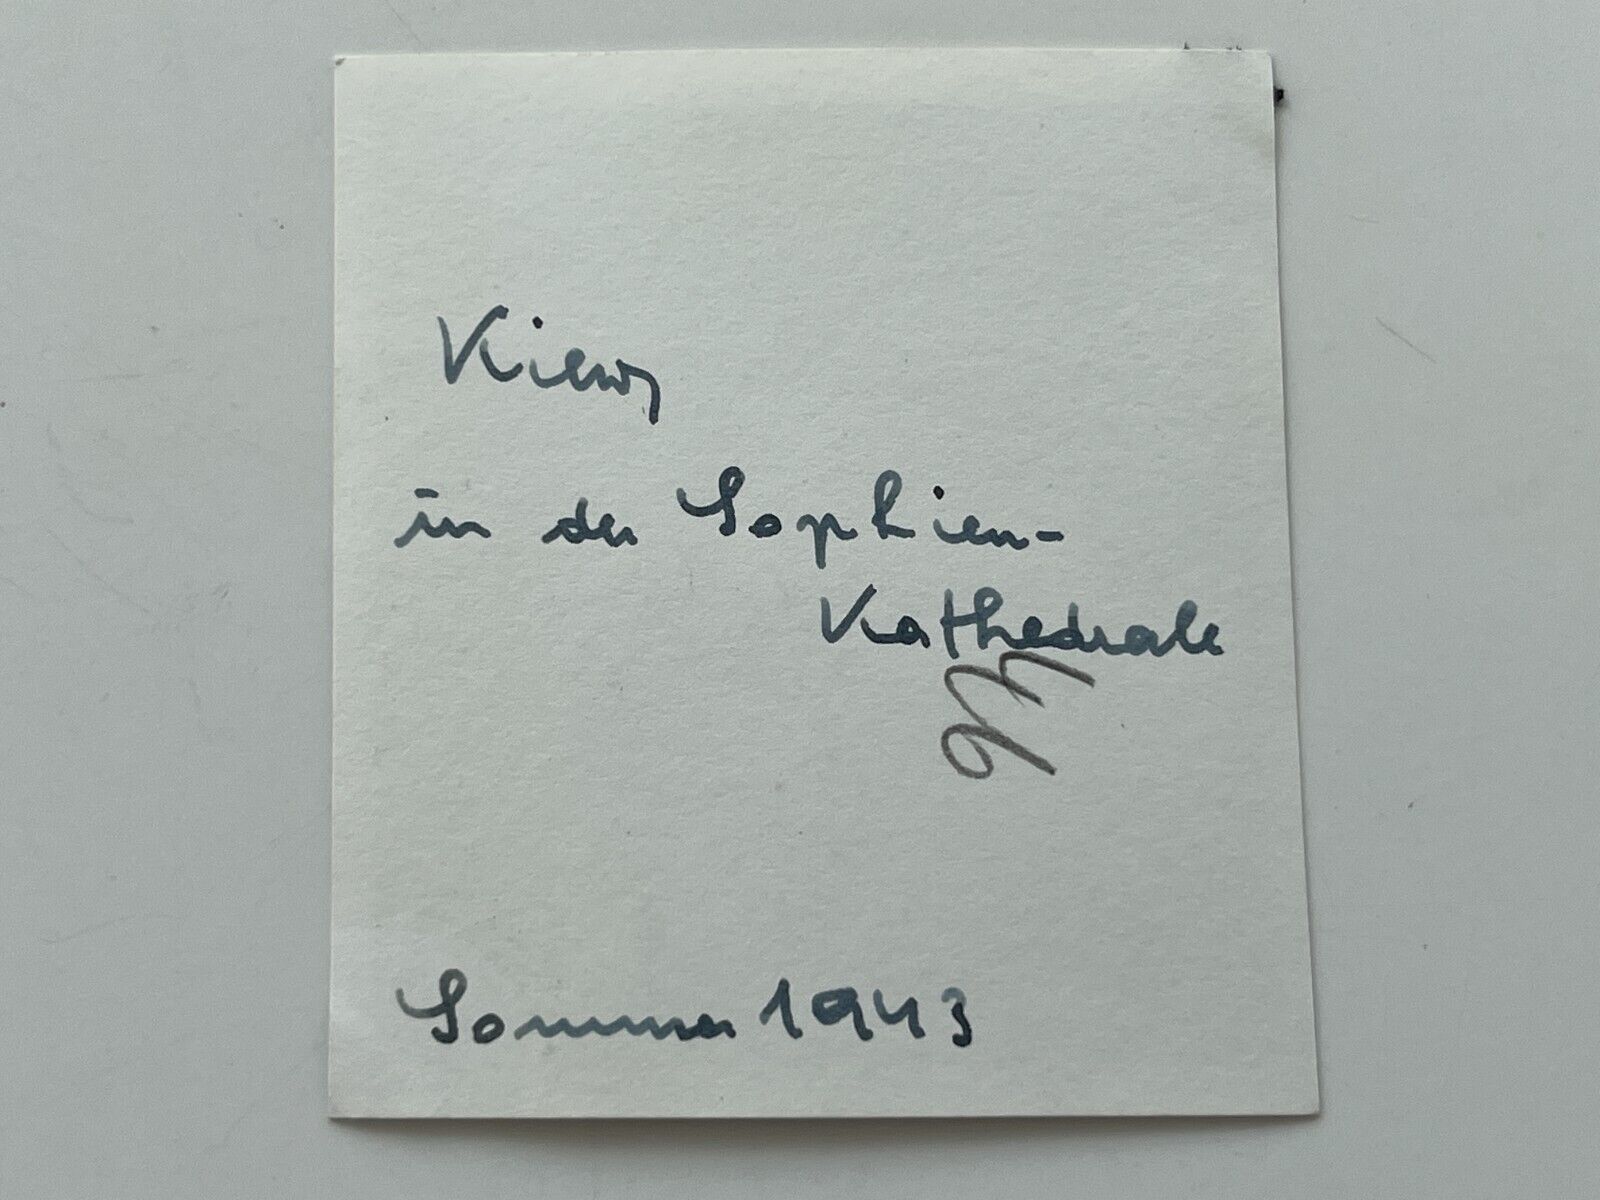 Kiew,
in der Sophien-
Kathedrale
Sommer 1943